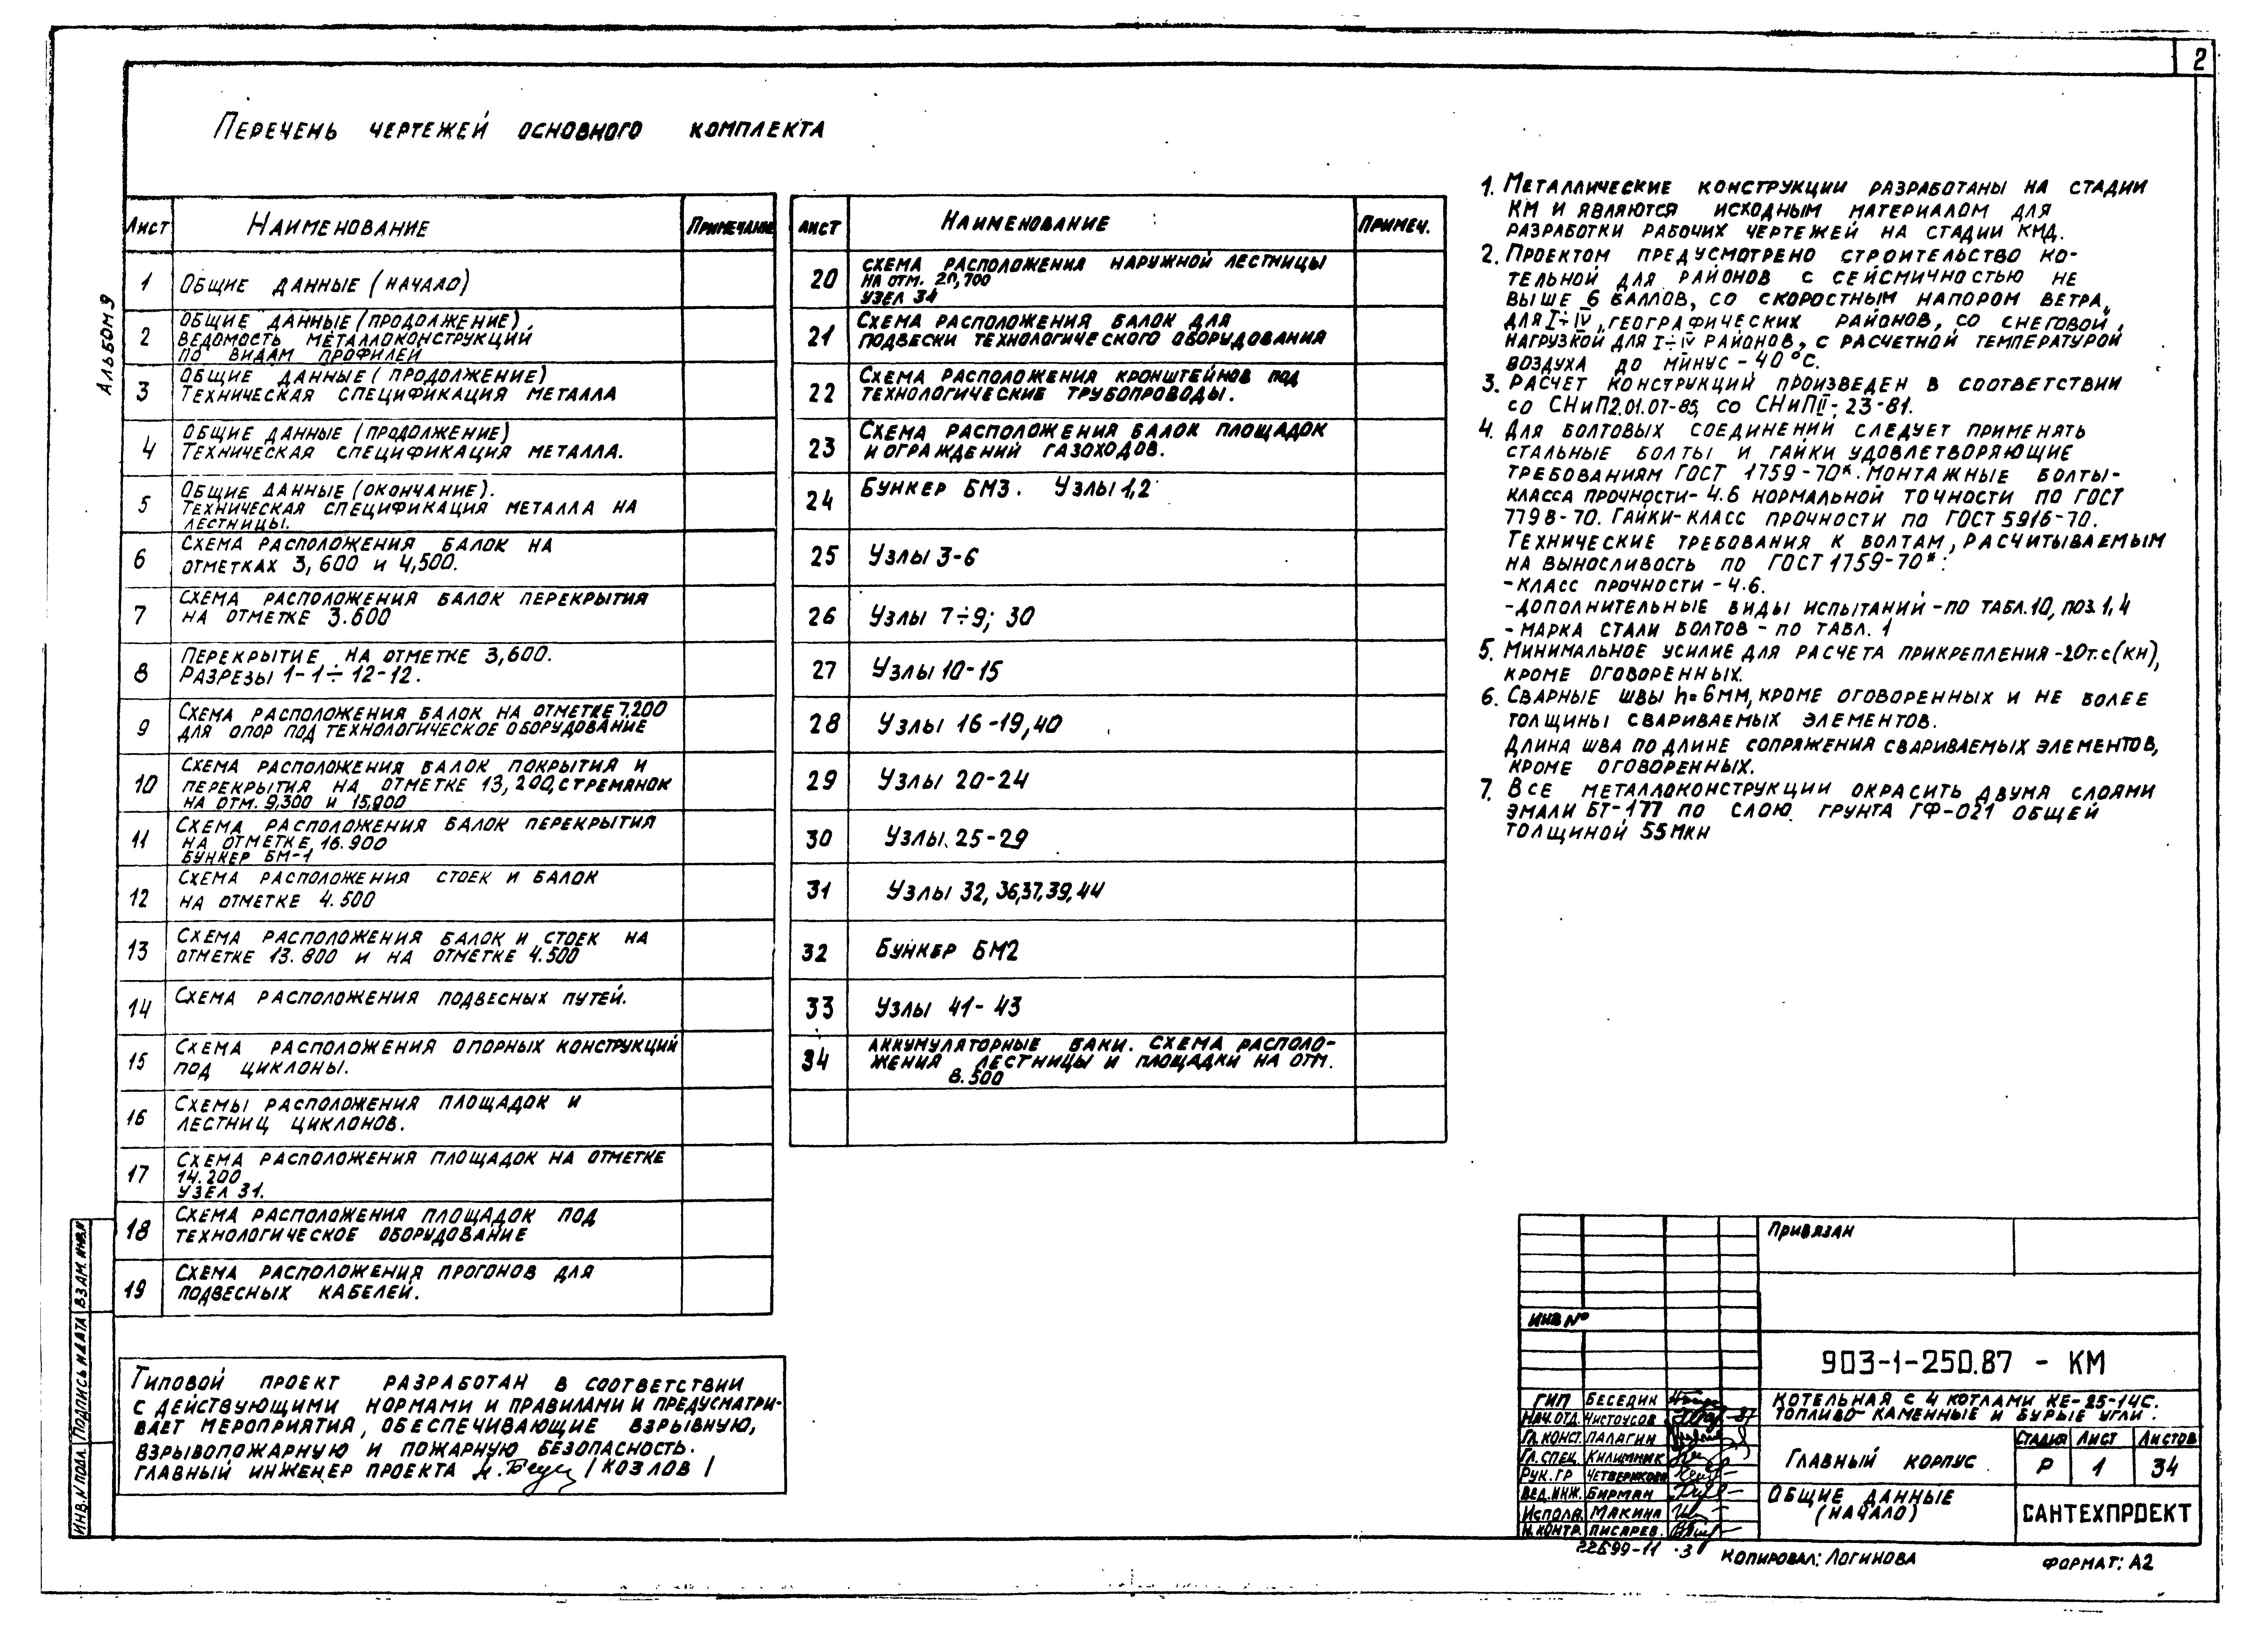 2
Альбом 9
Перечень чертежей основного комплекта
Лист Наименование Примечание
1 Общие данные (начало)
2 Общие данные (продолжение).
Ведомость металлоконструкций
по видам профилей
3 Общие данные (продолжение)
Техническая спецификация металла
4 Общие данные (продолжение)
Техническая спецификация металла.
5 Общие данные (окончание).
Техническая спецификация металла на
лестницы.
6 Схема расположения балок на
отметках 3,600 и 4,500.
7 Схема расположения балок перекрытия
на отметке 3.600
8 Перекрытие на отметке 3,600.
Разрезы 1-1÷12-12.
9 Схема расположения балок на отметке 7.200
для опор под технологическое оборудование
10 Схема расположения балок покрытия и
перекрытия на отметке 13,200, стремянок
на отм. 9,300 и 15,900
11 Схема расположения балок перекрытия
на отметке 16.900
Бункер БМ-1
12 Схема расположения стоек и балок
на отметке 4.500
13 Схема расположения балок и стоек на
отметке 13.800 и на отметке 4.500
14 Схема расположения подвесных путей.
15 Схема расположения опорных конструкций
под циклоны.
16 Схемы расположения площадок и
лестниц циклонов.
17 Схема расположения площадок на отметке
14.200
Узел 31.
18 Схема расположения площадок под
технологическое оборудование
19 Схема расположения прогонов для
подвесных кабелей.
Лист Наименование Примеч.
20 Схема расположения наружной лестницы
на отм. 20,700
Узел 34
21 Схема расположения балок для
подвески технологического оборудования
22 Схема расположения кронштейнов под
технологические трубопроводы.
23 Схема расположения балок площадок
и ограждений газоходов.
24 Бункер БМ3. Узлы 1,2
25 Узлы 3-6
26 Узлы 7÷9; 30
27 Узлы 10-15
28 Узлы 16-19,40
29 Узлы 20-24
30 Узлы 25-29
31 Узлы 32, 36,37,39,44
32 Бункер БМ2
33 Узлы 41-43
34 Аккумуляторные баки. Схема располо-
жения лестницы и площадки на отм.
8.500
1. Металлические конструкции разработаны на стадии
КМ и являются исходным материалом для
разработки рабочих чертежей на стадии КМД.
2. Проектом предусмотрено строительство ко-
тельной для районов с сейсмичностью не
выше 6 баллов, со скоростным напором ветра,
для I÷IV географических районов, со снеговой
нагрузкой для I÷IV районов, с расчетной температурой
воздуха до минус -40°С.
3. Расчет конструкций произведен в соответствии
со СНиП2.01.07-85, со СНиПII-23-81.
4. Для болтовых соединений следует применять
стальные болты и гайки удовлетворяющие
требованиям ГОСТ 1759-70*. Монтажные болты-
класса прочности-4.6 нормальной точности по ГОСТ
7798-70. Гайки-класс прочности по ГОСТ 5916-70.
Технические требования к болтам, расчитываемым
на выносливость по ГОСТ 1759-70*:
-класс прочности-4.6.
-дополнительные виды испытаний-по табл.10, поз.1,4
-марка стали болтов - по табл. 1
5. Минимальное усилие для расчета прикрепления-20т.с(кн),
кроме оговоренных.
6. Сварные швы h=6мм, кроме оговоренных и не более
толщины свариваемых элементов.
Длина шва по длине сопряжения свариваемых элементов,
кроме оговоренных.
7. Все металлоконструкции окрасить двумя слоями
эмали БТ-177 по слою грунта ГФ-021 общей
толщиной 55мкн
Типовой проект разработан в соответствии
с действующими нормами и правилами и предусматри-
вает мероприятия, обеспечивающие взрывную,
взрывопожарную и пожарную безопасность.
Главный инженер проекта /Козлов/
Инв.N подл. Подпись и дата Взам. инв.N
Привязан
Инв N°
903-1-250.87 - КМ
ГИП Беседин
Нач.отд. Чистоусов
Гл.конст. Палагин
Гл.спец. Килимник
Рук.гр Четверикова
Вед.инж. Бирман
Исполн. Макина
Н.контр. Писарев.
Котельная с 4 котлами КЕ-25-14С.
Топливо-каменные и бурые угли.
Главный корпус
Стадия Лист Листов
Р 1 34
Общие данные
(начало)
САНТЕХПРОЕКТ
22699-11 3
Копировал: Логинова
Формат: А2